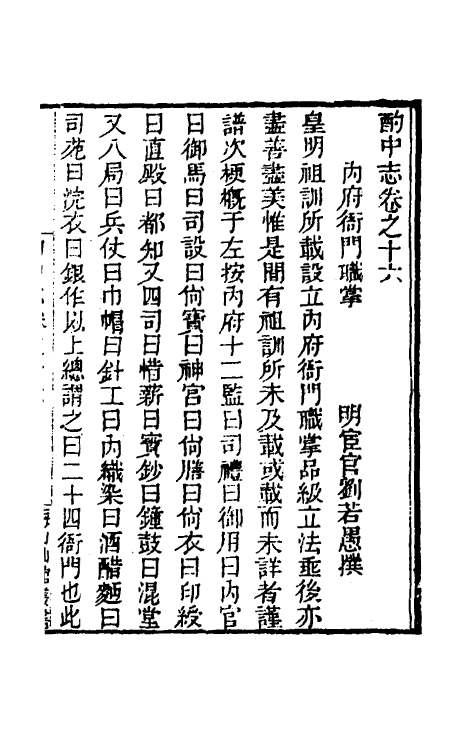 酌中志卷之十六
內府衙門職掌　明宦官劉若愚撰
皇明祖訓所載設立內府衙門職掌品級立法垂後亦
盡善盡美惟是間有祖訓所未及載或載而未詳者謹
譜次梗槪于左按內府十二監曰司禮曰御用曰內官
曰御馬曰司設曰尙寶曰神宮曰尙膳曰尙衣曰印綬
曰直殿曰都知又四司曰惜薪曰寶鈔曰鐘鼓曰混堂
又八局曰兵仗曰巾帽曰針工曰內織染曰酒醋麵曰
司苑曰浣衣曰銀作以上總謂之曰二十四衙門也此